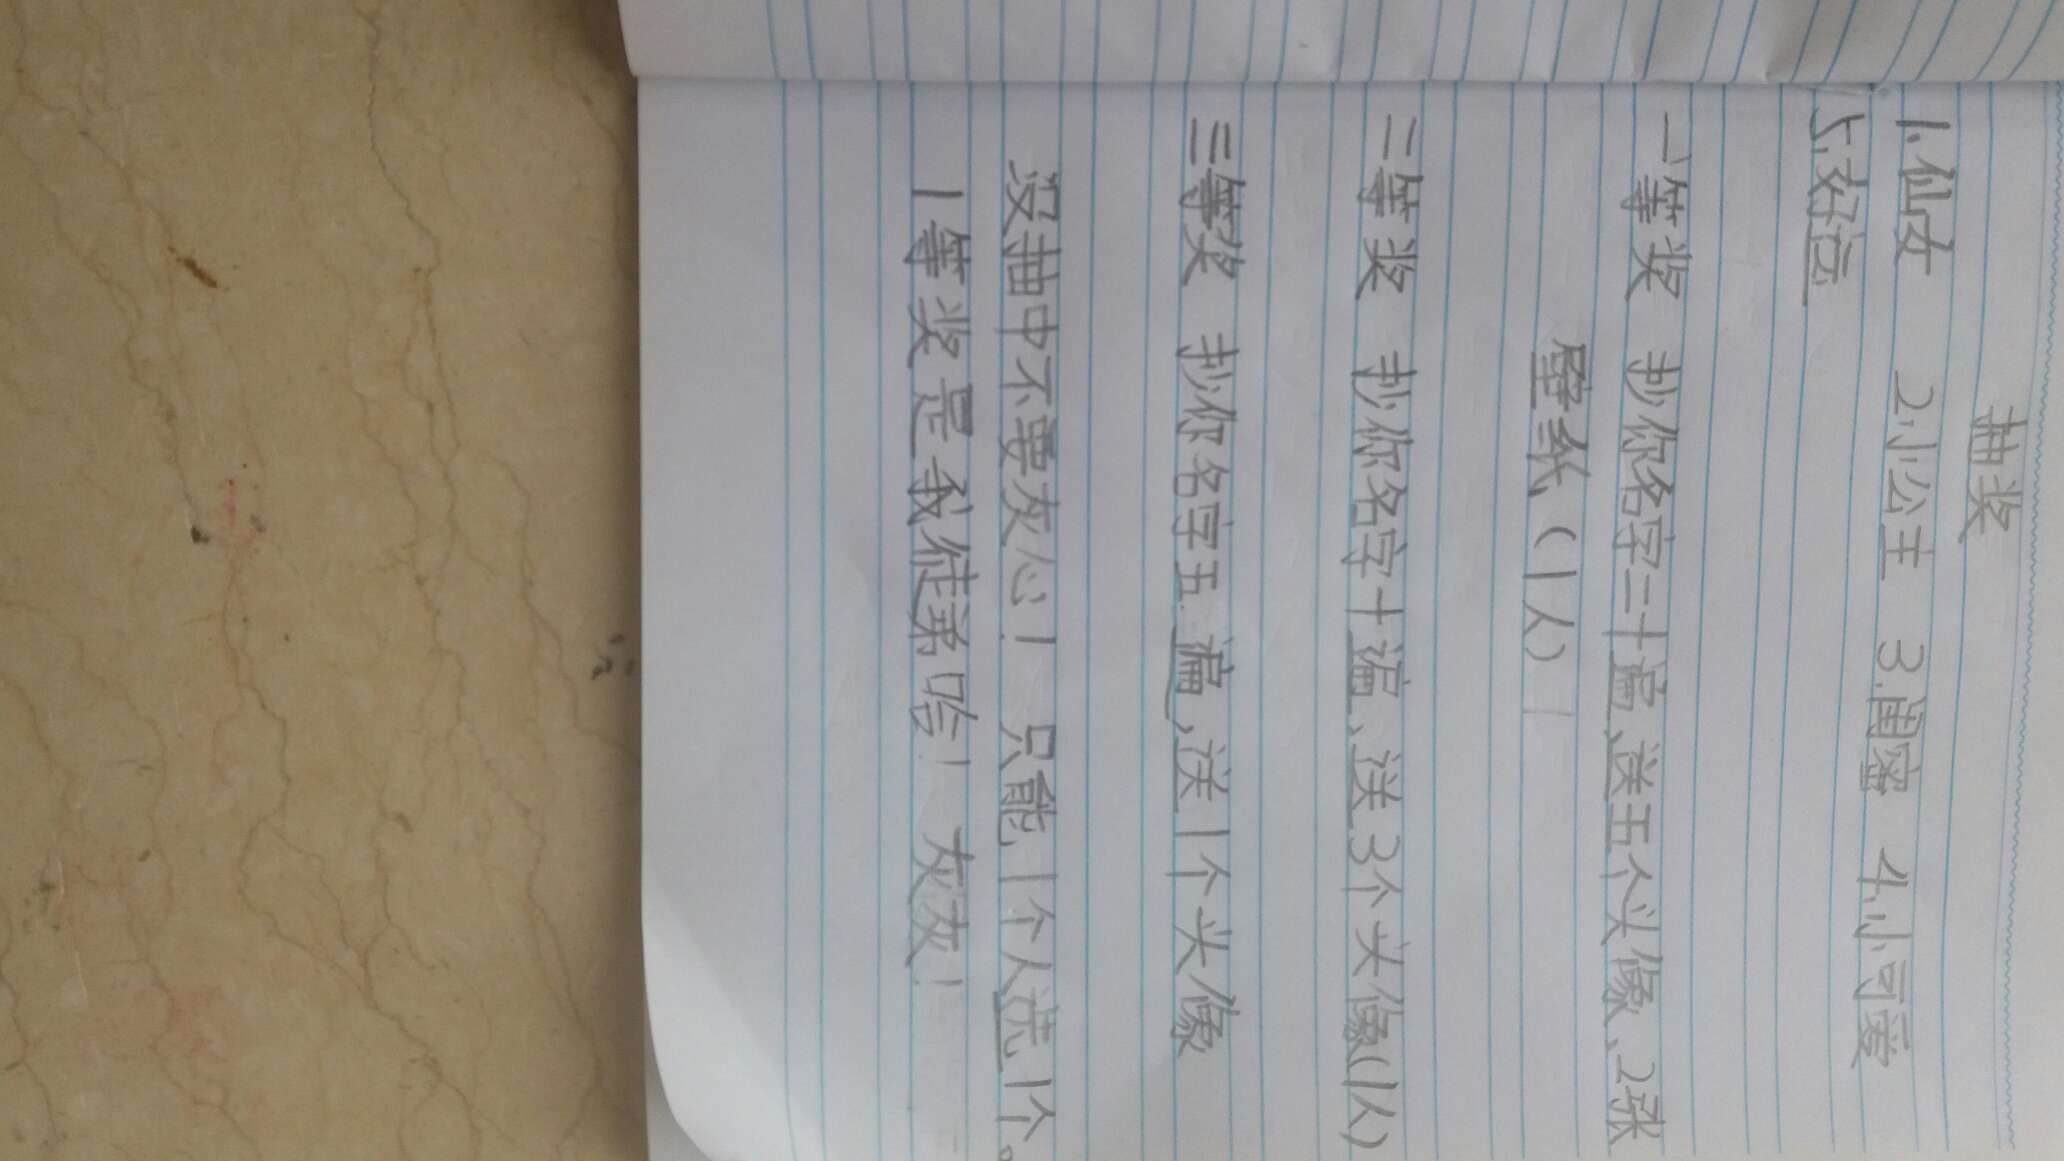 抽奖
1.仙女 2.小公主 3.闺密 4.小可爱
5.好运
一等奖 抄你名字二十遍、送五个头像、2张
壁纸(1人)
二等奖 抄你名字十遍、送3个头像(1人)
三等奖 抄你名字五遍,送1个头像
没抽中不要灰心! 只能1个人选1个。
1等奖是我徒弟哈! 灰灰!